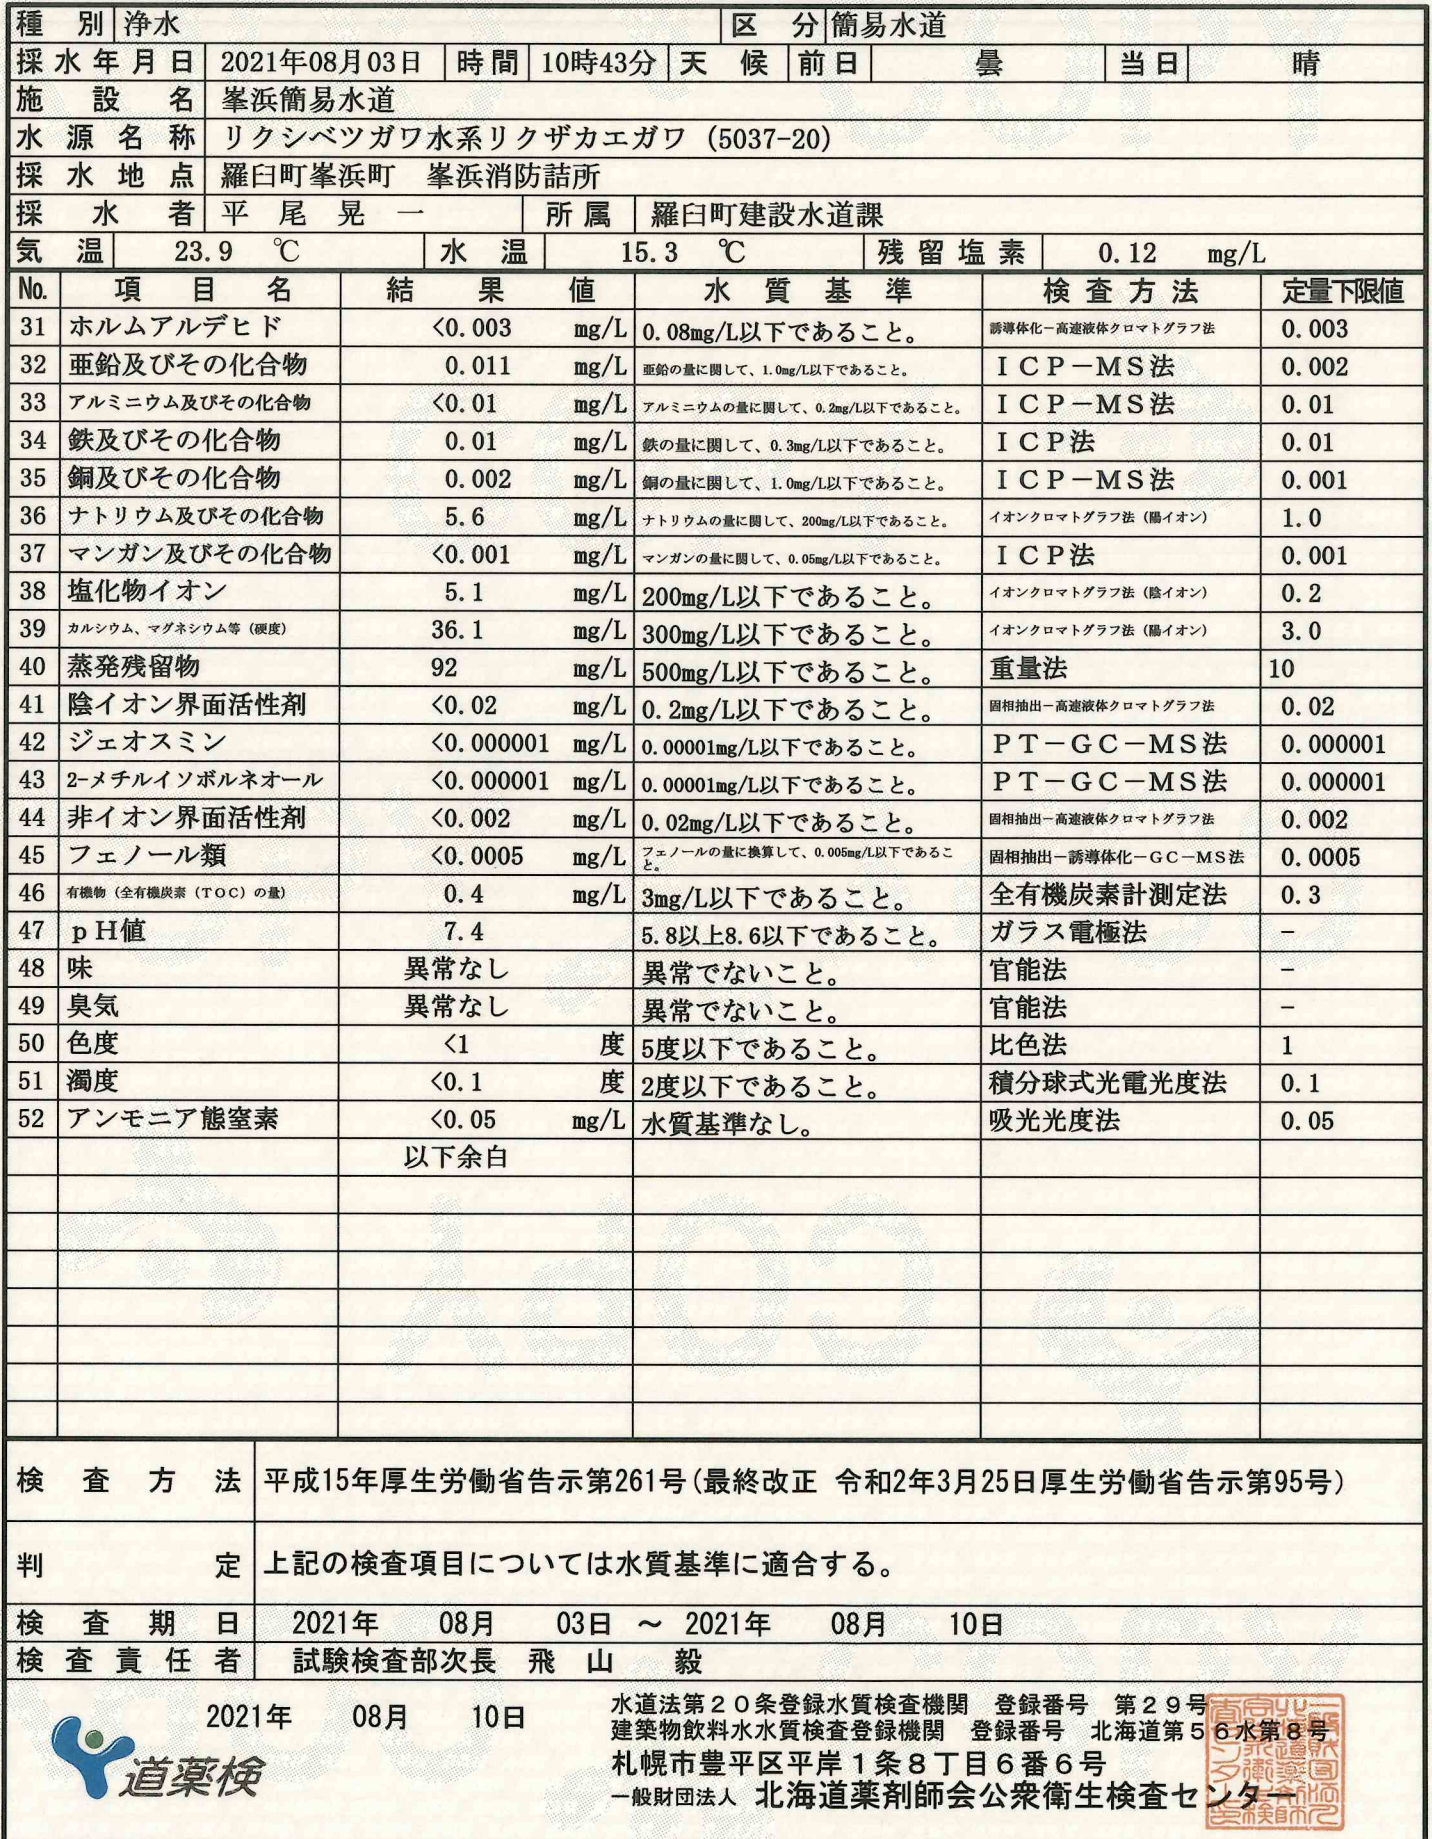 種別 浄水 区分 簡易水道
採水年月日 2021年08月03日 時間 10時43分 天候 前日 曇 当日 晴
施設名 峯浜簡易水道
水源名称 リクシベツガワ水系リクザカエガワ (5037-20)
採水地点 羅臼町峯浜町 峯浜消防詰所
採水者 平尾晃一 所属 羅臼町建設水道課
気温 23.9 ℃ 水温 15.3 ℃ 残留塩素 0.12 mg/L
No. 項目名 結果値 水質基準 検査方法 定量下限値
31 ホルムアルデヒド <0.003 mg/L 0.08mg/L以下であること。 誘導体化−高速液体クロマトグラフ法 0.003
32 亜鉛及びその化合物 0.011 mg/L 亜鉛の量に関して、1.0mg/L以下であること。 ICP−MS法 0.002
33 アルミニウム及びその化合物 <0.01 mg/L アルミニウムの量に関して、0.2mg/L以下であること。 ICP−MS法 0.01
34 鉄及びその化合物 0.01 mg/L 鉄の量に関して、0.3mg/L以下であること。 ICP法 0.01
35 銅及びその化合物 0.002 mg/L 銅の量に関して、1.0mg/L以下であること。 ICP−MS法 0.001
36 ナトリウム及びその化合物 5.6 mg/L ナトリウムの量に関して、200mg/L以下であること。 イオンクロマトグラフ法（陽イオン） 1.0
37 マンガン及びその化合物 <0.001 mg/L マンガンの量に関して、0.05mg/L以下であること。 ICP法 0.001
38 塩化物イオン 5.1 mg/L 200mg/L以下であること。 イオンクロマトグラフ法（陰イオン） 0.2
39 カルシウム、マグネシウム等（硬度） 36.1 mg/L 300mg/L以下であること。 イオンクロマトグラフ法（陽イオン） 3.0
40 蒸発残留物 92 mg/L 500mg/L以下であること。 重量法 10
41 陰イオン界面活性剤 <0.02 mg/L 0.2mg/L以下であること。 固相抽出−高速液体クロマトグラフ法 0.02
42 ジェオスミン <0.000001 mg/L 0.00001mg/L以下であること。 PT−GC−MS法 0.000001
43 2-メチルイソボルネオール <0.000001 mg/L 0.00001mg/L以下であること。 PT−GC−MS法 0.000001
44 非イオン界面活性剤 <0.002 mg/L 0.02mg/L以下であること。 固相抽出−高速液体クロマトグラフ法 0.002
45 フェノール類 <0.0005 mg/L フェノールの量に換算して、0.005mg/L以下であること。 固相抽出−誘導体化−GC−MS法 0.0005
46 有機物（全有機炭素（TOC）の量） 0.4 mg/L 3mg/L以下であること。 全有機炭素計測定法 0.3
47 pH値 7.4 5.8以上8.6以下であること。 ガラス電極法 −
48 味 異常なし 異常でないこと。 官能法 −
49 臭気 異常なし 異常でないこと。 官能法 −
50 色度 <1 度 5度以下であること。 比色法 1
51 濁度 <0.1 度 2度以下であること。 積分球式光電光度法 0.1
52 アンモニア態窒素 <0.05 mg/L 水質基準なし。 吸光光度法 0.05
以下余白
検査方法 平成15年厚生労働省告示第261号(最終改正 令和2年3月25日厚生労働省告示第95号)
判定 上記の検査項目については水質基準に適合する。
検査期日 2021年 08月 03日 ～ 2021年 08月 10日
検査責任者 試験検査部次長 飛山 毅
2021年 08月 10日
水道法第２０条登録水質検査機関 登録番号 第２９号
建築物飲料水水質検査登録機関 登録番号 北海道第５６水第８号
札幌市豊平区平岸１条８丁目６番６号
一般財団法人 北海道薬剤師会公衆衛生検査センター
道薬検
COPY